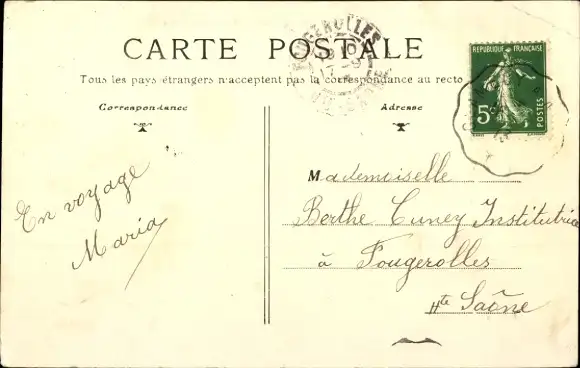 CARTE POSTALE
Tous les pays étrangers n'acceptent pas la correspondance au recto
Correspondance
Adresse
FOUGEROLLES
REPUBLIQUE FRANÇAISE
5c
POSTES
En voyage
Maria
Mademoiselle
Berthe Cuney Institutrice
à Fougerolles
Hte Saône